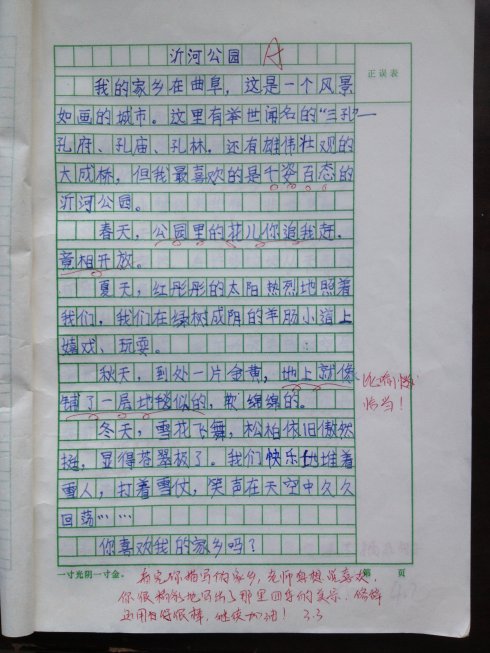 沂河公园 A
正误表
我的家乡在曲阜，这是一个风景
如画的城市。这里有举世闻名的“三孔”—
孔府、孔庙、孔林，还有雄伟壮观的
大成桥，但我最喜欢的是千姿百态的
沂河公园。
春天，公园里的花儿你追我赶，
竞相开放。
夏天，红彤彤的太阳热烈地照着
我们，我们在绿树成阴的羊肠小道上
嬉戏、玩耍。
秋天，到处一片金黄，地上就像
铺了一层地毯似的，软绵绵的。
恰当！
冬天，雪花飞舞，松柏依旧傲然
挺，显得苍翠极了。我们快乐地堆着
雪人，打着雪仗，笑声在天空中久久
回荡……
你喜欢我的家乡吗？
一寸光阴一寸金。
第 页
看完你描写的家乡，老师真想说喜欢，
你很精彩地写出了那里四季的美景，修辞
运用得很棒，继续加油！ 3.3